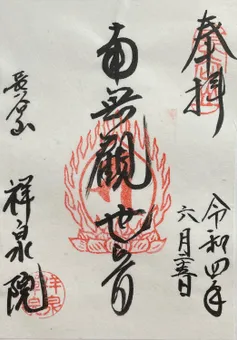 奉拝
令和四年
六月二五日
南無観世音
長谷山
祥泉院